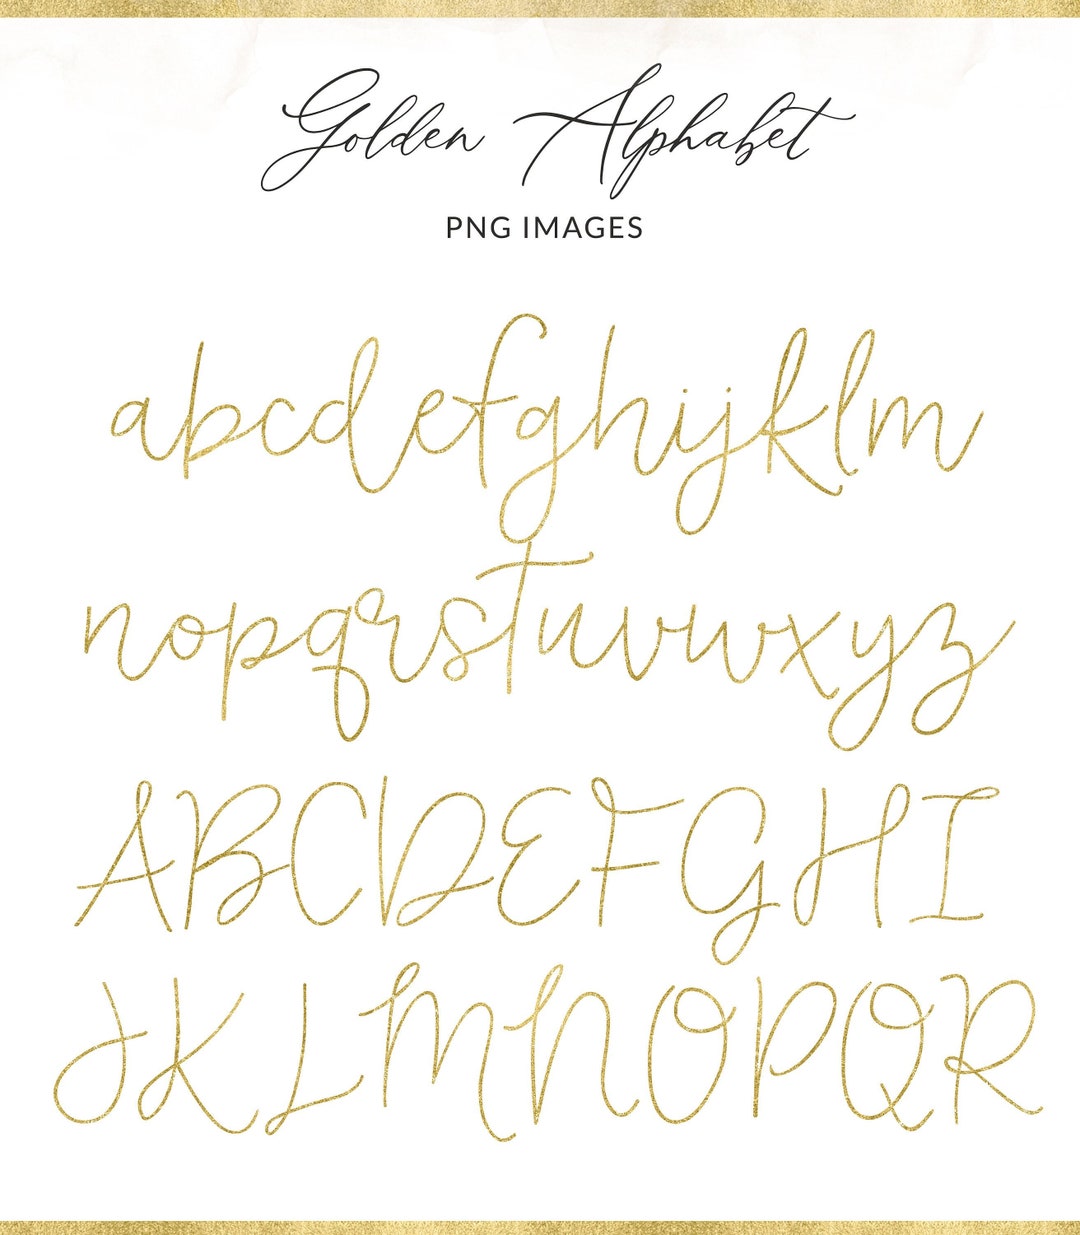 Golden Alphabet
PNG IMAGES
abcdefghijklm
nopqrstuvwxyz
ABCDEFGHI
JKLMNOPQR